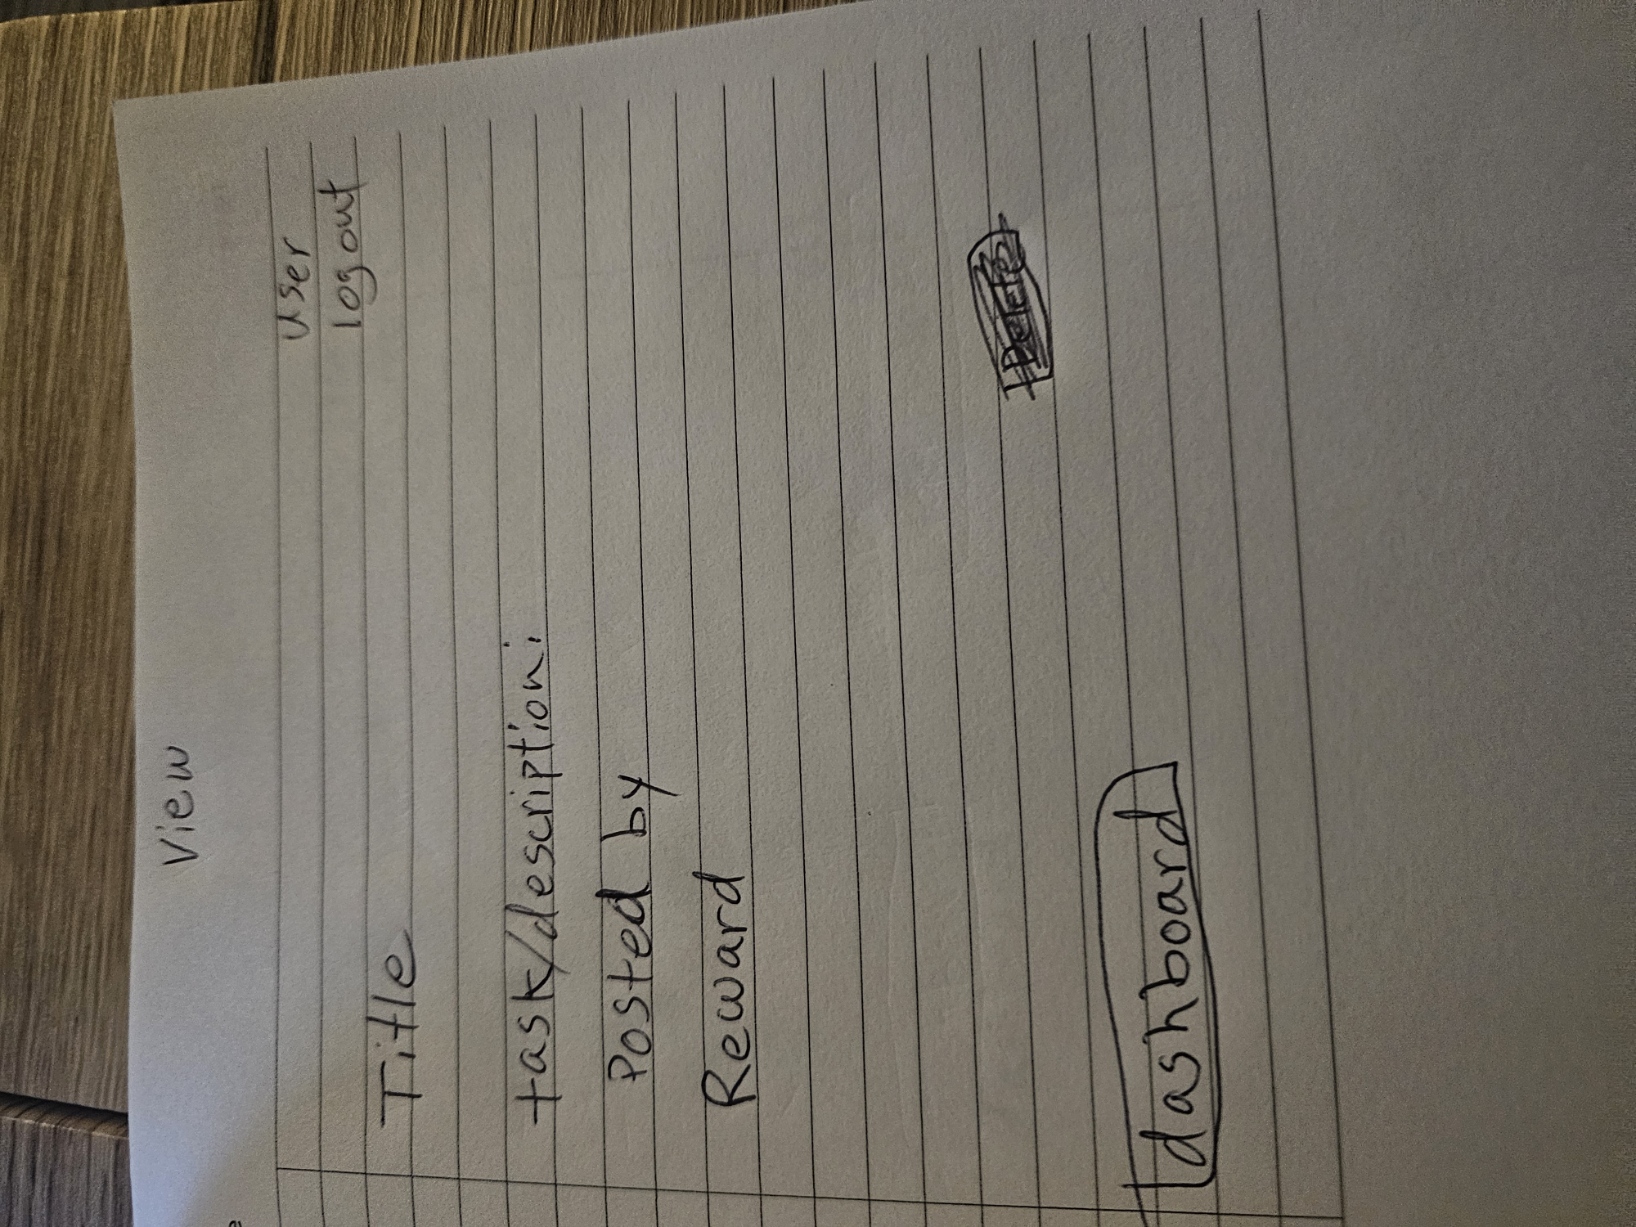 View
e
user
logout
Title
task/description:
Posted by
Reward
Delete
dashboard